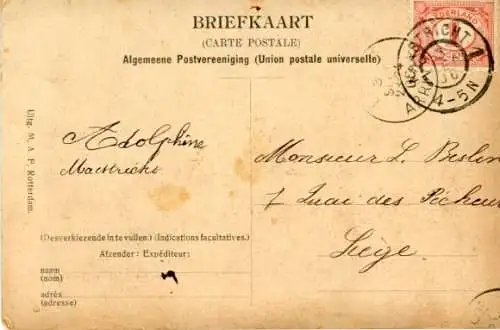 BRIEFKAART
(CARTE POSTALE)
Algemeene Postvereeniging (Union postale universelle)
Adolphine
Maestricht
Monsieur L. Beslin
7 Quai des Pêcheurs
Liége
(Desverkiezende in te vullen.) (Indications facultatives.)
Afzender: Expéditeur:
naam
(nom)
adrès
(adresse)
Uitg. M. A. F. Rotterdam.
4-5N